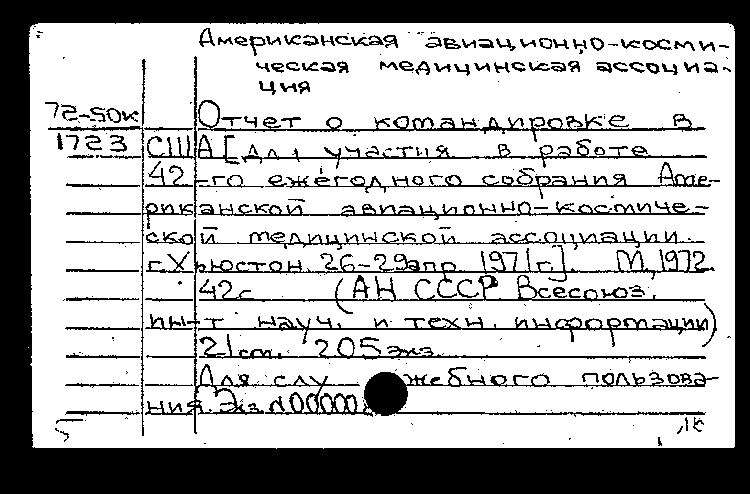 Американская авиационно-косми-
ческая медицинская ассоциа-
ция
72-50к
Отчет о командировке в
1723
США [для участия в работе
42-го ежегодного собрания Аме-
риканской авиационно-космиче-
ской медицинской ассоциации.
г. Хьюстон. 26-29 апр. 1971 г.]. М., 1972.
42 с. (АН СССР Всесоюз.
ин-т науч. и техн. информации)
21 см. 205 экз.
Для служебного пользова-
ния. Экз. N 000008